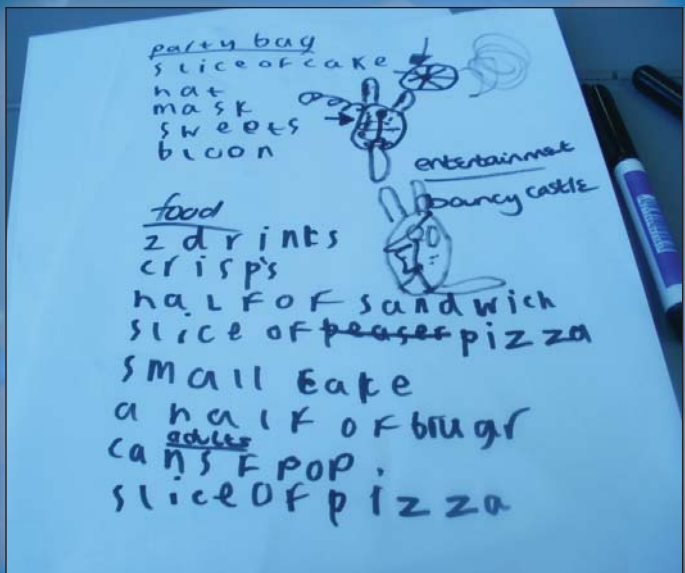 party bag
slice of cake
hat
mask
sweets
bloon
entertainmet
bouncy castle
food
2 drinks
crisp's
half of sandwich
slice of peaser pizza
small cake
a half of brugr
adults
cans F pop.
slice of pizza